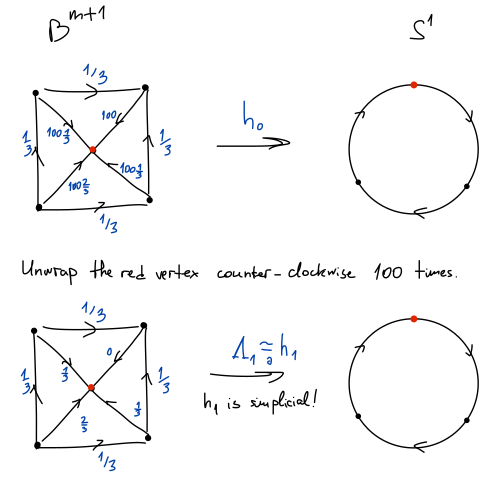 B^{m+1} S^1
1/3
100
1/3 100 1/3 1/3
h_0
100 2/3 100 1/3
1/3
Unwrap the red vertex counter-clockwise 100 times.
1/3
0
1/3 1/3 1/3
Λ_1 ≅_∂ h_1
2/3 1/3
h_1 is simplicial!
1/3